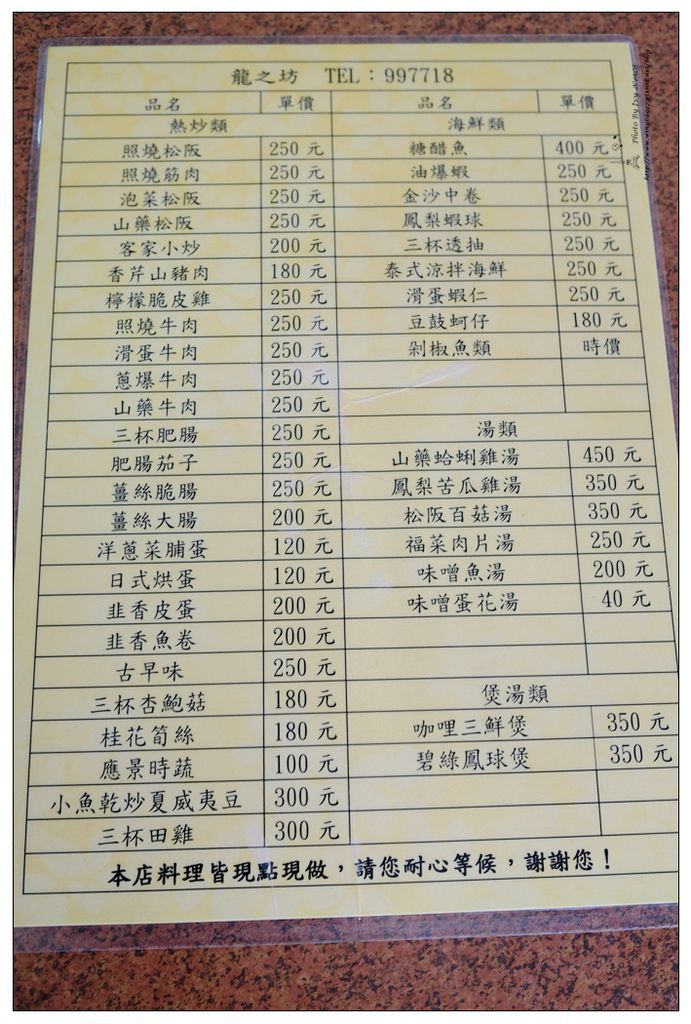 龍之坊 TEL：997718
品名 單價 品名 單價
熱炒類 海鮮類
照燒松阪 250 元 糖醋魚 400 元
照燒筋肉 250 元 油爆蝦 250 元
泡菜松阪 250 元 金沙中卷 250 元
山藥松阪 250 元 鳳梨蝦球 250 元
客家小炒 200 元 三杯透抽 250 元
香芹山豬肉 180 元 泰式涼拌海鮮 250 元
檸檬脆皮雞 250 元 滑蛋蝦仁 250 元
照燒牛肉 250 元 豆鼓蚵仔 180 元
滑蛋牛肉 250 元 剁椒魚類 時價
蔥爆牛肉 250 元
山藥牛肉 250 元
三杯肥腸 250 元 湯類
肥腸茄子 250 元 山藥蛤蜊雞湯 450 元
薑絲脆腸 250 元 鳳梨苦瓜雞湯 350 元
薑絲大腸 200 元 松阪百菇湯 350 元
洋蔥菜脯蛋 120 元 福菜肉片湯 250 元
日式烘蛋 120 元 味噌魚湯 200 元
韭香皮蛋 200 元 味噌蛋花湯 40 元
韭香魚卷 200 元
古早味 250 元
三杯杏鮑菇 180 元 煲湯類
桂花筍絲 180 元 咖哩三鮮煲 350 元
應景時蔬 100 元 碧綠鳳球煲 350 元
小魚乾炒夏威夷豆 300 元
三杯田雞 300 元
本店料理皆現點現做，請您耐心等候，謝謝您！
Photo By Ivy